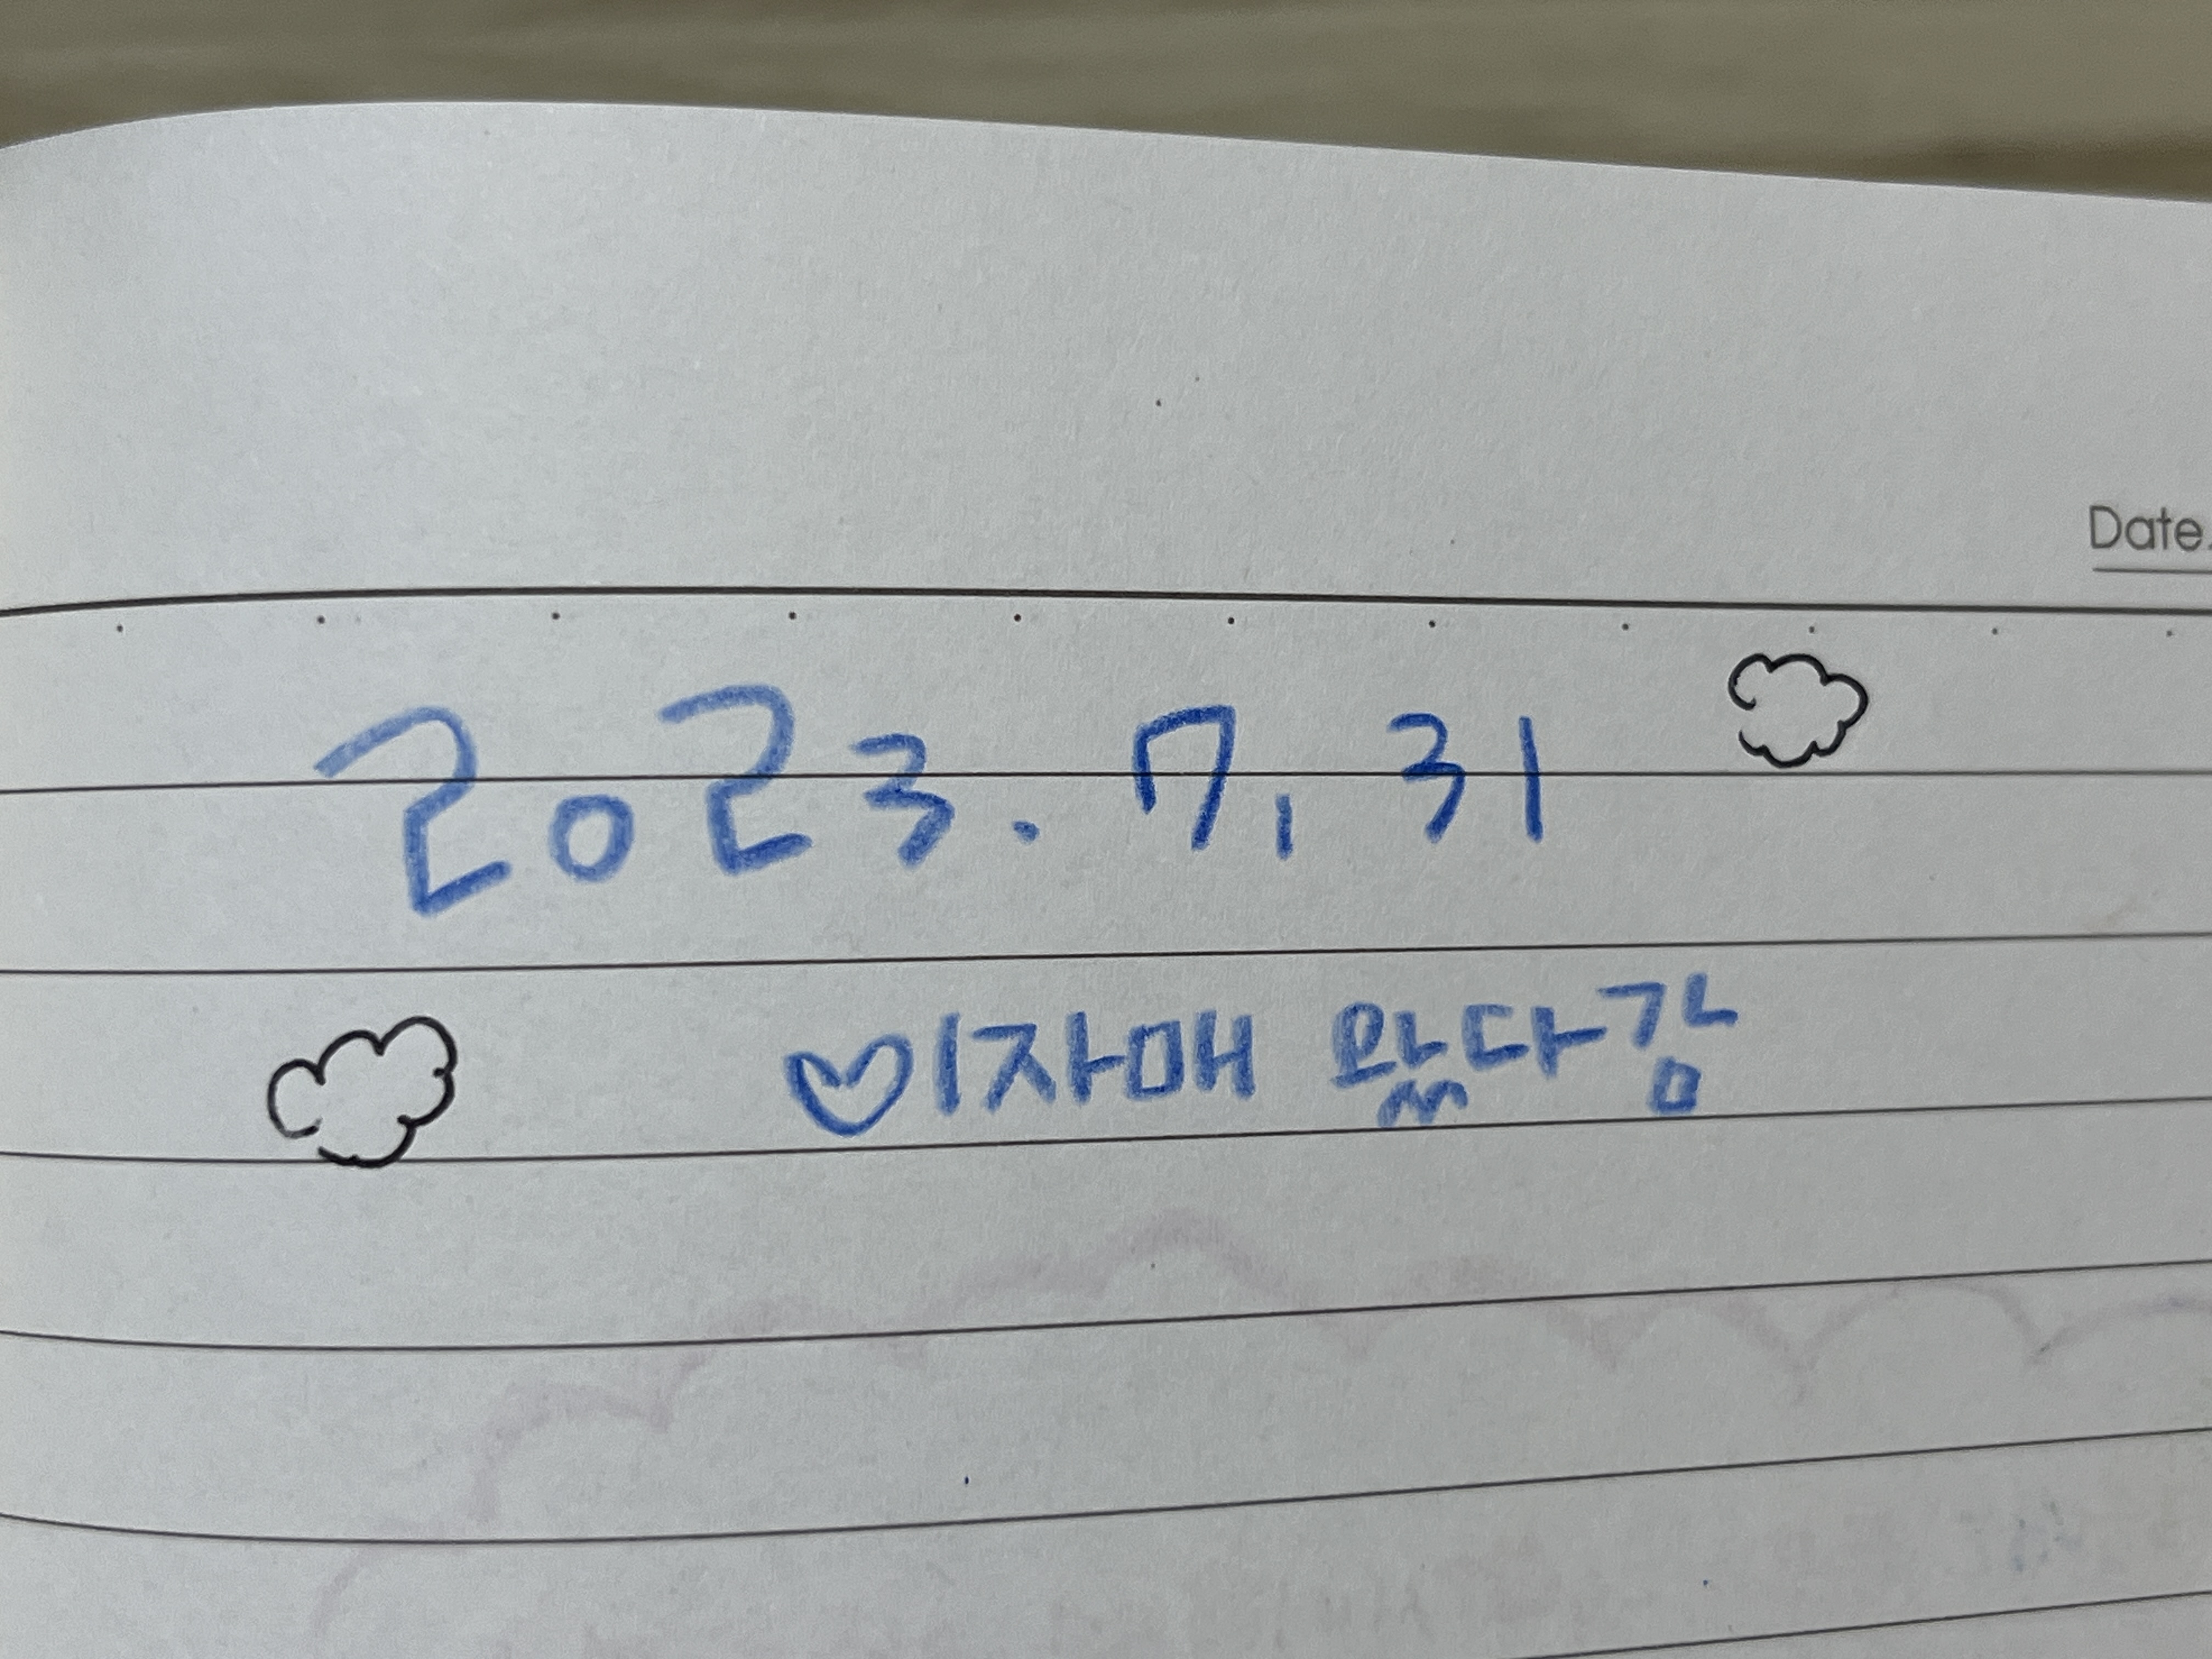 Date.
2023. 7, 31
♡이자매 왔다감